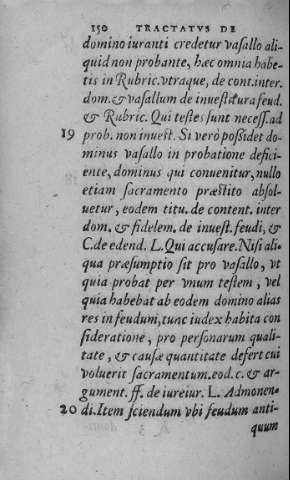 150 TRACTATVS DE
domino iuranti credetur vasallo ali-
quid non probante, hæc omnia habe-
tis in Rubric. vtraque, de cont. inter.
dom. & vasallum de inuestitura feud.
& Rubric. Qui testes sunt necess. ad
19 prob. non inuest. Si verò possidet do-
minus vasallo in probatione defici-
ente, dominus qui conuenitur, nullo
etiam sacramento præstito absol-
uetur, eodem titu. de content. inter
dom. & fidelem. de inuest. feudi, &
C. de edend. L. Qui accusare. Nisi ali-
qua præsumptio sit pro vasallo, vt
quia probat per vnum testem, vel
quia habebat ab eodem domino alias
res in feudum, tunc iudex habita con
sideratione, pro personarum quali-
tate, & causæ quantitate defert cui
voluerit sacramentum. eod. c. & ar-
gument. ff. de iureiur. L. Admonen-
20 di. Item sciendum vbi feudum anti-
quum